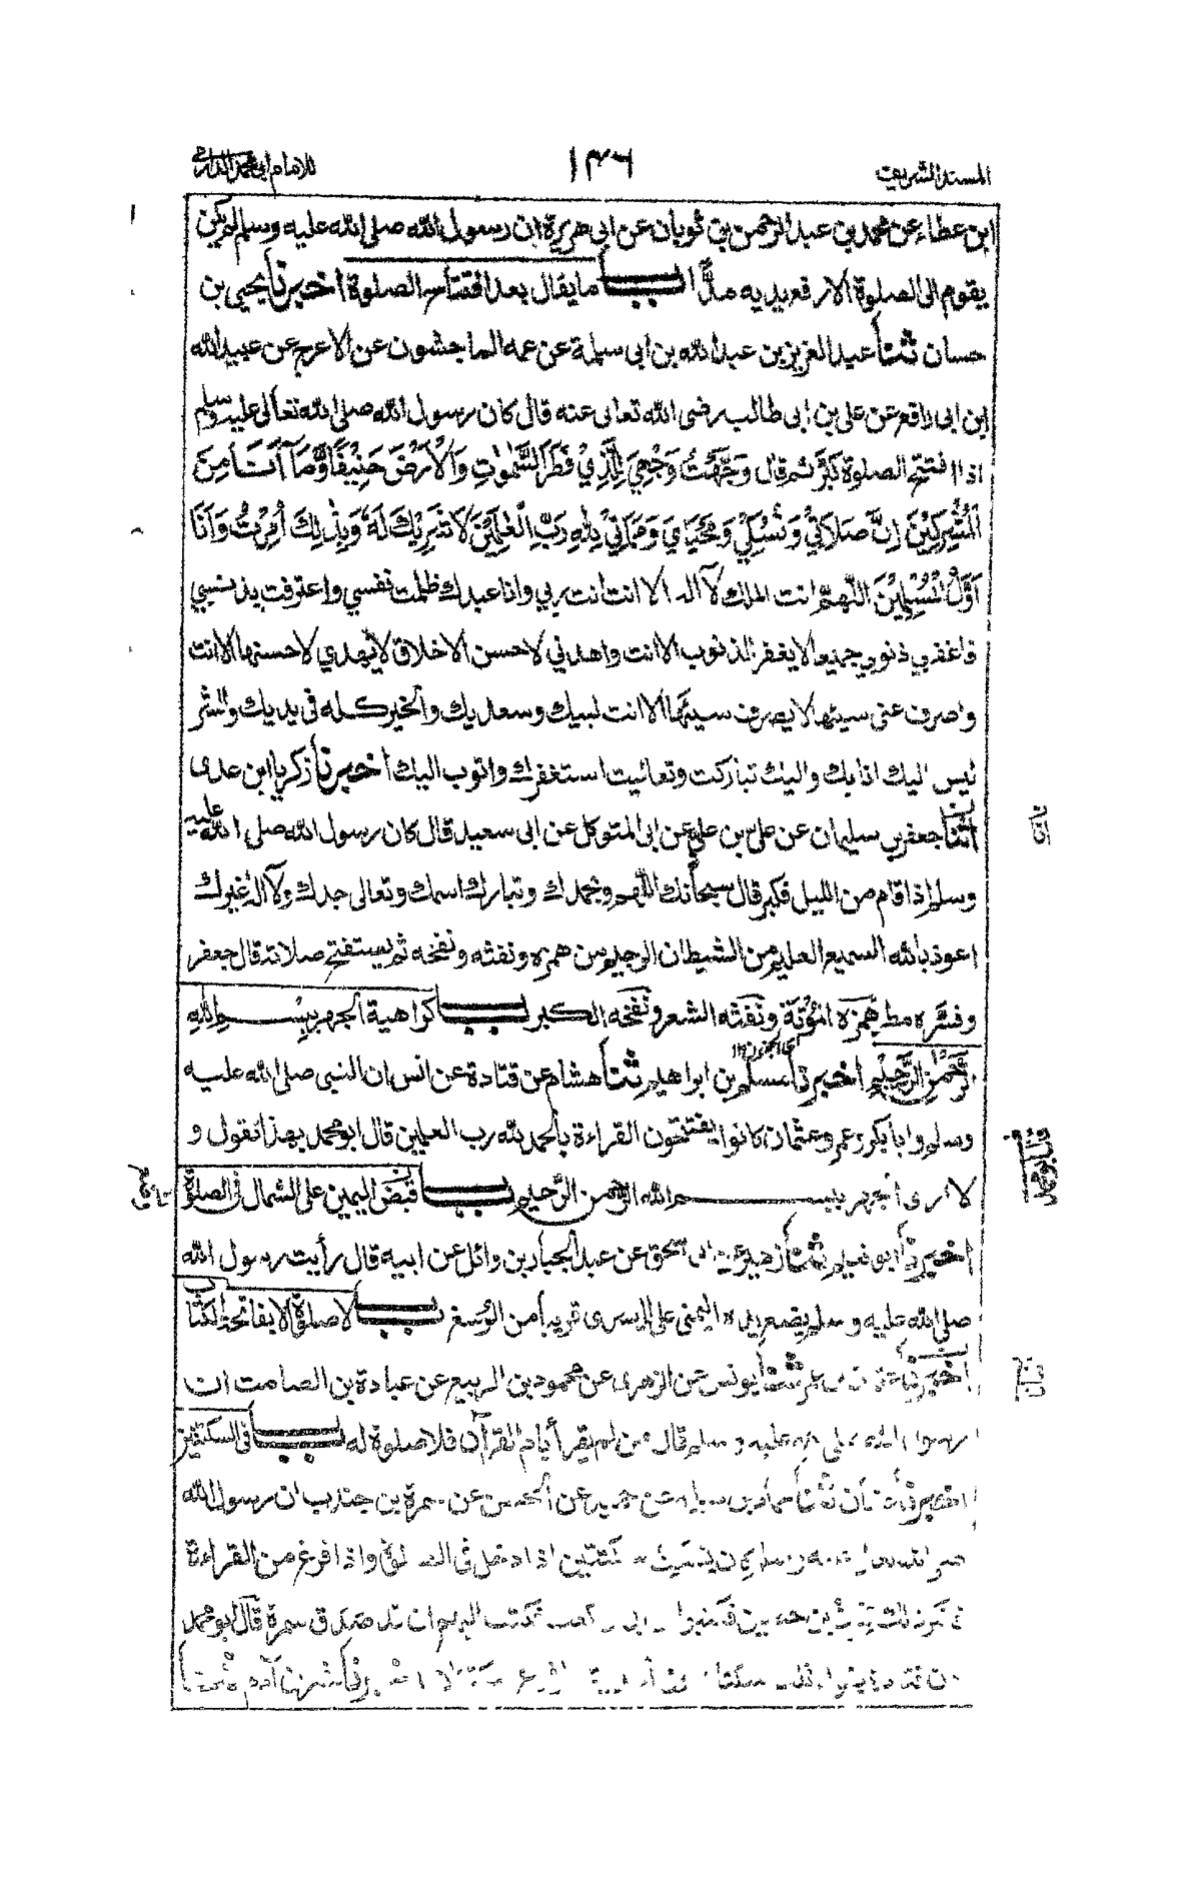 المسند الشريف ١٤٦ للامام ابي محمد الدارمي
ابن عطاء عن محمد بن عبد الرحمن بن ثوبان عن ابي هريرة ان رسول الله صلى الله عليه وسلم لم يكن
يقوم الى الصلوة الا رفع يديه مدًّا باب ما يقال بعد افتتاح الصلوة اخبرنا يحيى بن
حسان ثنا عبد العزيز بن عبد الله بن ابي سلمة عن عمه الماجشون عن الاعرج عن عبيد الله
ابن ابي رافع عن علي بن ابي طالب رضى الله تعالى عنه قال كان رسول الله صلى الله تعالى عليه وسلم
اذا افتتح الصلوة كبّر ثم قال وَجَّهْتُ وَجْهِيَ لِلَّذِيْ فَطَرَ السَّمٰوٰتِ وَالْاَرْضَ حَنِيْفًا وَّمَآ اَنَا مِنَ
الْمُشْرِكِيْنَ اِنَّ صَلَاتِيْ وَنُسُكِيْ وَمَحْيَايَ وَمَمَاتِيْ لِلّٰهِ رَبِّ الْعٰلَمِيْنَ لَا شَرِيْكَ لَهٗ وَبِذٰلِكَ اُمِرْتُ وَاَنَا
اَوَّلُ الْمُسْلِمِيْنَ اللّهمّ انت الملك لآ اله الا انت انت ربي وانا عبدك ظلمت نفسي واعترفت بذنبي
فاغفر لي ذنوبي جميعا لا يغفر الذنوب الا انت واهدني لاحسن الاخلاق لا يهدي لاحسنها الا انت
واصرف عني سيئها لا يصرف سيئها الا انت لبيك وسعديك والخير كله في يديك والشر
ليس اليك انا بك واليك تباركت وتعاليت استغفرك واتوب اليك اخبرنا زكريا ابن عدى
ثنا جعفر بن سليمان عن علي بن علي عن ابي المتوكل عن ابي سعيد قال كان رسول الله صلى الله عليه
وسلم اذا قام من الليل فكبر قال سبحانك اللهم وبحمدك وتبارك اسمك وتعالى جدك ولآ اله غيرك
اعوذ بالله السميع العليم من الشيطان الرجيم من همزه ونفثه ونفخه ثم يستفتح صلاته قال جعفر
وفسّره مطر همزه المُؤتة ونفثه الشعر ونفخه الكبر باب كراهية الجهر ببسم الله
الرَّحمٰن الرَّحيم اخبرنا مسلم بن ابراهيم ثنا هشام عن قتادة عن انس ان النبي صلى الله عليه
وسلم وابا بكر وعمر وعثمان كانوا يفتتحون القراءة بالحمد لله رب العلمين قال ابو محمد بهذا نقول و
لا ارى الجهر ببسم الله الرحمن الرّحيم باب قبض اليمين على الشمال في الصلوة
اخبرنا ابو نعيم ثنا زهير عن ابي اسحق عن عبد الجبار بن وائل عن ابيه قال رأيت رسول الله
صلى الله عليه وسلم يضع يده اليمنى على اليسرى قريبا من الرُسغ باب لا صلوة الا بفاتحة الكتاب
اخبرنا عثمان بن عمر ثنا يونس عن الزهرى عن محمود بن الربيع عن عبادة بن الصامت ان
رسول الله صلى الله عليه وسلم قال من لم يقرأ بام القرآن فلا صلوة له باب في السكتتين
اخبرنا عفان ثنا حماد بن سلمة عن حميد عن الحسن عن سمرة بن جندب ان رسول الله
صلى الله عليه وسلم كان يسكت سكتتين اذا دخل في الصلوة واذا فرغ من القراءة
بن حصين فكتبوا الى ابي بن كعب فكتب اليهم ان قد صدق سمرة قال ابو محمد